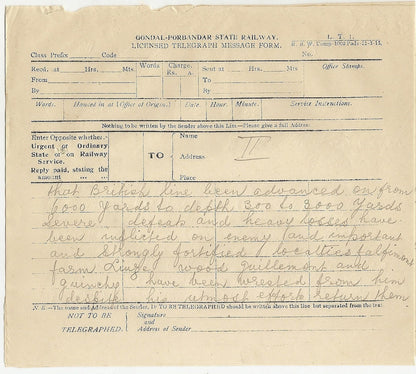 GONDAL-PORBANDAR STATE RAILWAY.
LICENSED TELEGRAPH MESSAGE FORM.
L. T. 1.
Class Prefix Code
No.
Recd. at Hrs. Mts.
Words
Charge.
Rs. a.
Sent at Hrs. Mts.
Office Stamps.
From
To
By
By
Words. Handed in at (Office of Origin.) Date. Hour. Minute. Service Instructions.
Nothing to be written by the Sender above this Line—Please give a full Address.
Enter Opposite whether:-
Urgent or Ordinary
State or on Railway
Service.
Reply paid, stating the
amount
TO
Name
Address
Place
II
that British line been advanced on from
6000 Yards to depth 300 to 3000 Yards
severe defeat and heavy losses have
been inflicted on enemy and important
and strongly fortified localities
farm Linge wood Guillemont and
guinchy have been wrested from him
despite his utmost effort return them
N. B.—The name and Address of the Sender, IF TO BE TELEGRAPHED should be written above this line but separated from the text
NOT TO BE
TELEGRAPHED.
Signature
and
Address of Sender